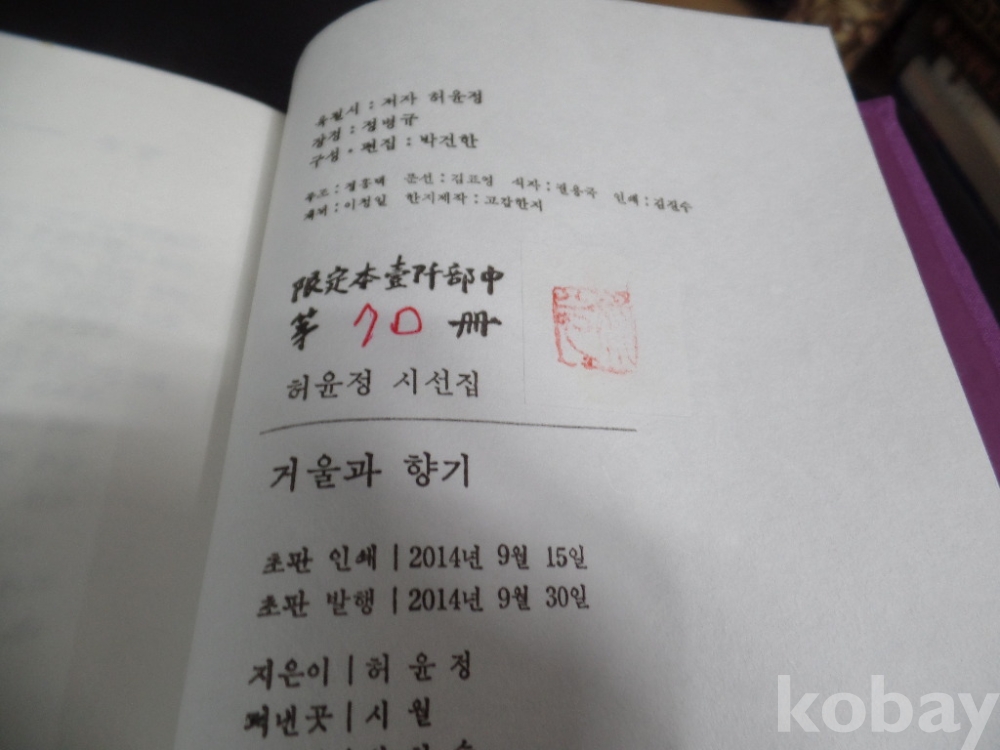 육필시 : 저자 허윤정
장정 : 정병규
구성·편집 : 박건한
문선 : 김표영 식자 : 권용국 인쇄 : 김진수
한지제작 : 고감한지
限定本壹阡部中
第 70 冊
허윤정 시선집
거울과 향기
초판 인쇄 | 2014년 9월 15일
초판 발행 | 2014년 9월 30일
지은이 | 허 윤 정
펴낸곳 | 시 월
kobay